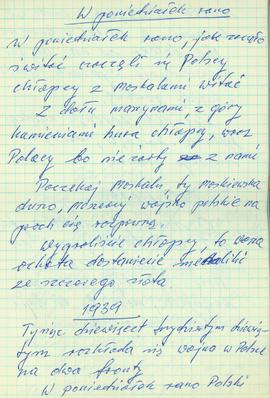 W poniedziałek rano
W poniedziałek rano, jak zaczęło
świtać zaczęli się Polscy
chłopcy z moskalami witać
Z dołu maszynami, z góry
kamieniami hura chłopcy, wraz
Polacy bo nie żarty z nami
Poczekaj Moskalu, ty moskiewska
duszo, wojsko polskie na
proch cię rozproszą.
Wygraliście chłopcy, to wasza
ochota dostaniecie medaliki
ze szczerego złota.
1939
Tysiąc dziewięćset trzydziestym dziewią-
tym rozkłada się wojna w Polsce
na dwa fronty
W poniedziałek rano Polski